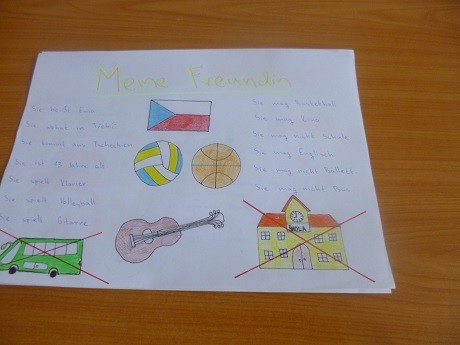 Meine Freundin
Sie heißt
Sie wohnt in
Sie kommt aus Tschechien
Sie ist 13 Jahre alt
Sie spielt Klavier
Sie spielt Volleyball
Sie spielt Gitarre
Sie mag Basketball
Sie mag
Sie mag nicht Schule
Sie mag Englisch
Sie mag nicht Ballett
Sie mag nicht Bus
ŠKOLA